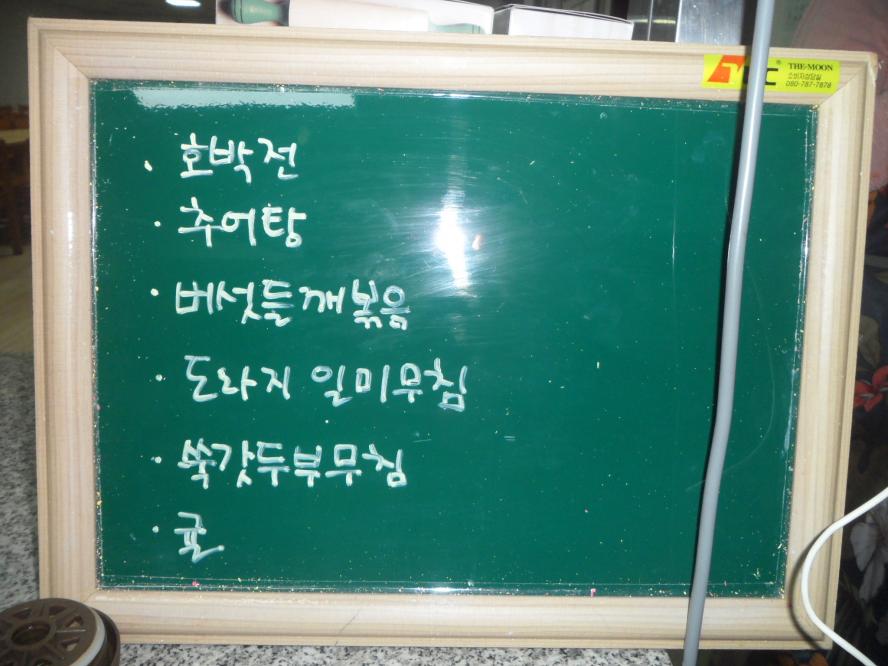 THE-MOON
소비자상담실
080-787-7878
· 호박전
· 추어탕
· 버섯들깨볶음
· 도라지 일미무침
· 쑥갓두부무침
· 귤